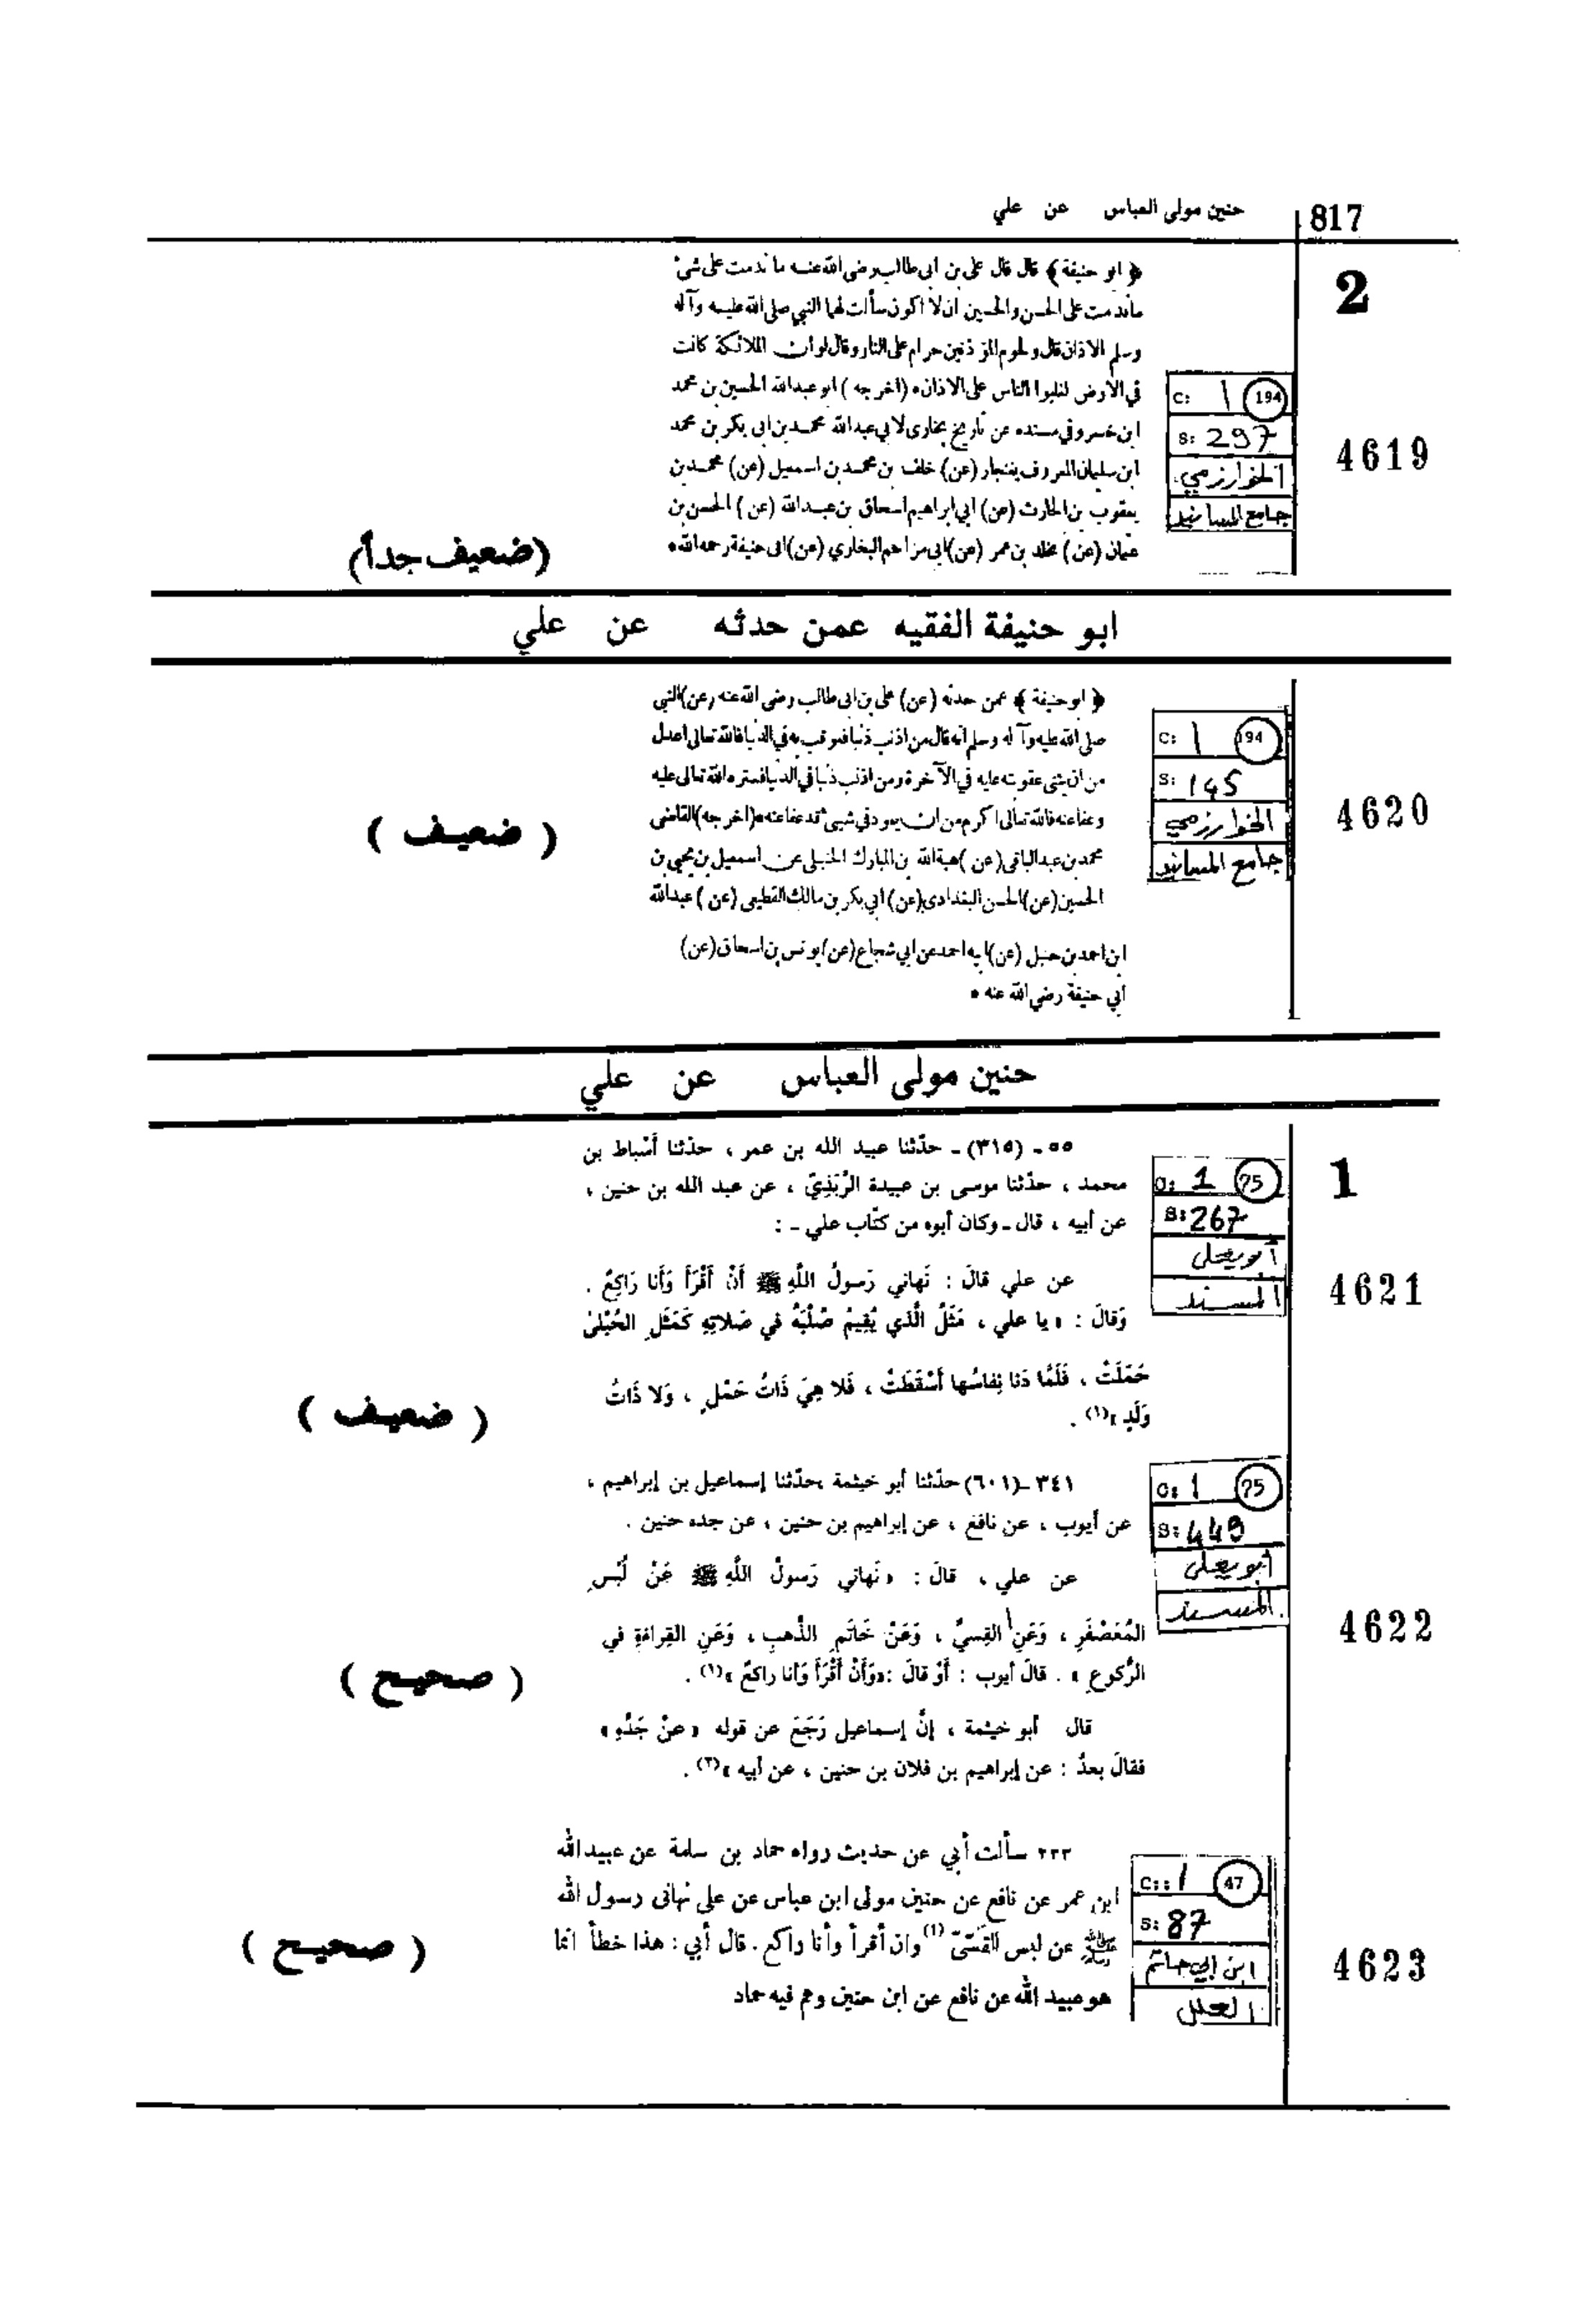 817 حنين مولى العباس عن علي
2
﴿ ابو حنيفة ﴾ قال قال علي بن ابى طالب رضى الله عنه ما ندمت على شئ
ماندمت على الحسن والحسين ان لا اكون سألت لهما النبي صلى الله عليه وآله
وسلم الاذان قال ولحوم المؤذنين حرام على النار وقال لو ان الملائكة كانت
في الارض لغلبوا الناس على الاذان * (اخرجه) ابو عبدالله الحسين بن محمد
ابن خسرو في مسنده عن تاريخ بخارى لابي عبدالله محمد بن ابى بكر بن محمد
ابن سليمان المعروف بغنجار (عن) خلف بن محمد بن اسمعيل (عن) محمد بن
يعقوب بن الحارث (عن) ابى ابراهيم اسحاق بن عبدالله (عن) الحسن بن
عثمان (عن) مخلد بن عمر (عن) ابى مزاحم البخاري (عن) ابى حنيفة رحمه الله *
C: 1 194
S: 297
الخوارزمي
جامع المسانيد
4619
(ضعيف جداً)
ابو حنيفة الفقيه عمن حدثه عن علي
﴿ ابو حنيفة ﴾ عمن حدثه (عن) على بن ابى طالب رضى الله عنه (عن) النبي
صلى الله عليه وآله وسلم انه قال من اذنب ذنبا فعوقب به في الدنيا فالله تعالى اعدل
من ان يثنى عقوبته عليه في الآخرة ومن اذنب ذنبا في الدنيا فستره الله تعالى عليه
وعفا عنه فالله تعالى اكرم من ان يعود في شيئ قد عفا عنه * (اخرجه) القاضى
محمد بن عبدالباقى (عن) هبة الله بن المبارك الحنبلى عن اسمعيل بن يحيى بن
الحسين (عن) الحسن البغدادى (عن) ابي بكر بن مالك القطيعى (عن) عبدالله
ابن احمد بن حنبل (عن) ابيه احمد عن ابي شجاع (عن) يونس بن اسحاق (عن)
أبي حنيفة رضي الله عنه *
C: 1 194
S: 145
الخوارزمي
جامع المسانيد
4620
( ضعيف )
حنين مولى العباس عن علي
1
٥٥ - (٣١٥) - حدّثنا عبيد الله بن عمر ، حدثنا أَسْباط بن
محمد ، حدّثنا موسى بن عبيدة الرَّبَذِيّ ، عن عبد الله بن حنين ،
عن أبيه ، قال - وكان أبوه من كتّاب علي - :
عن علي قالَ : نَهاني رَسولُ اللَّهِ ﷺ أَنْ أَقْرَأَ وَأَنا رَاكِعٌ .
وَقالَ : « يا علي ، مَثَلُ الَّذي يُقِيمُ صُلْبَهُ في صَلاتِهِ كَمَثَلِ الحُبْلىٰ
حَمَلَتْ ، فَلَمَّا دَنا نِفاسُها أَسْقَطَتْ ، فَلا هِيَ ذَاتُ حَمْلٍ ، وَلا ذَاتُ
وَلَدٍ »(١) .
C: 1 75
S: 267
أبو يعلى
المسند
4621
( ضعيف )
٣٤١ - (٦٠١) حدّثنا أبو خيثمة ،حدّثنا إسماعيل بن إبراهيم ،
عن أيوب ، عن نافع ، عن إبراهيم بن حنين ، عن جده حنين .
عن علي ، قالَ : « نَهاني رَسولُ اللَّهِ ﷺ عَنْ لُبْسِ
المُعَصْفَرِ ، وَعَنِ القِسيِّ ، وَعَنْ خَاتَمِ الذَّهبِ ، وَعَنِ القِراءَةِ في
الرُّكوعِ » . قالَ أيوب : أَوْ قالَ : «وَأَنْ أَقْرَأَ وَأنا راكعٌ »(١) .
قال أبو خيثمة ، إنَّ إسماعيل رَجَعَ عن قوله « عنْ جَدِّهِ »
فقالَ بعدُ : عن إبراهيم بن فلان بن حنين ، عن أبيه »(٢) .
C: 1 75
S: 449
أبو يعلى
المسند
4622
( صحيح )
٢٢٢ سألت أبي عن حديث رواه حماد بن سلمة عن عبيدالله
ابن عمر عن نافع عن حنين مولى ابن عباس عن علي نهانى رسول الله
ﷺ عن لبس القَسّيّ (١) وان أقرأ وأنا راكع . قال أبي : هذا خطأ انما
هو عبيد الله عن نافع عن ابن حنين وهم فيه حماد
C: 1 47
S: 87
ابن ابي حاتم
العلل
4623
( صحيح )